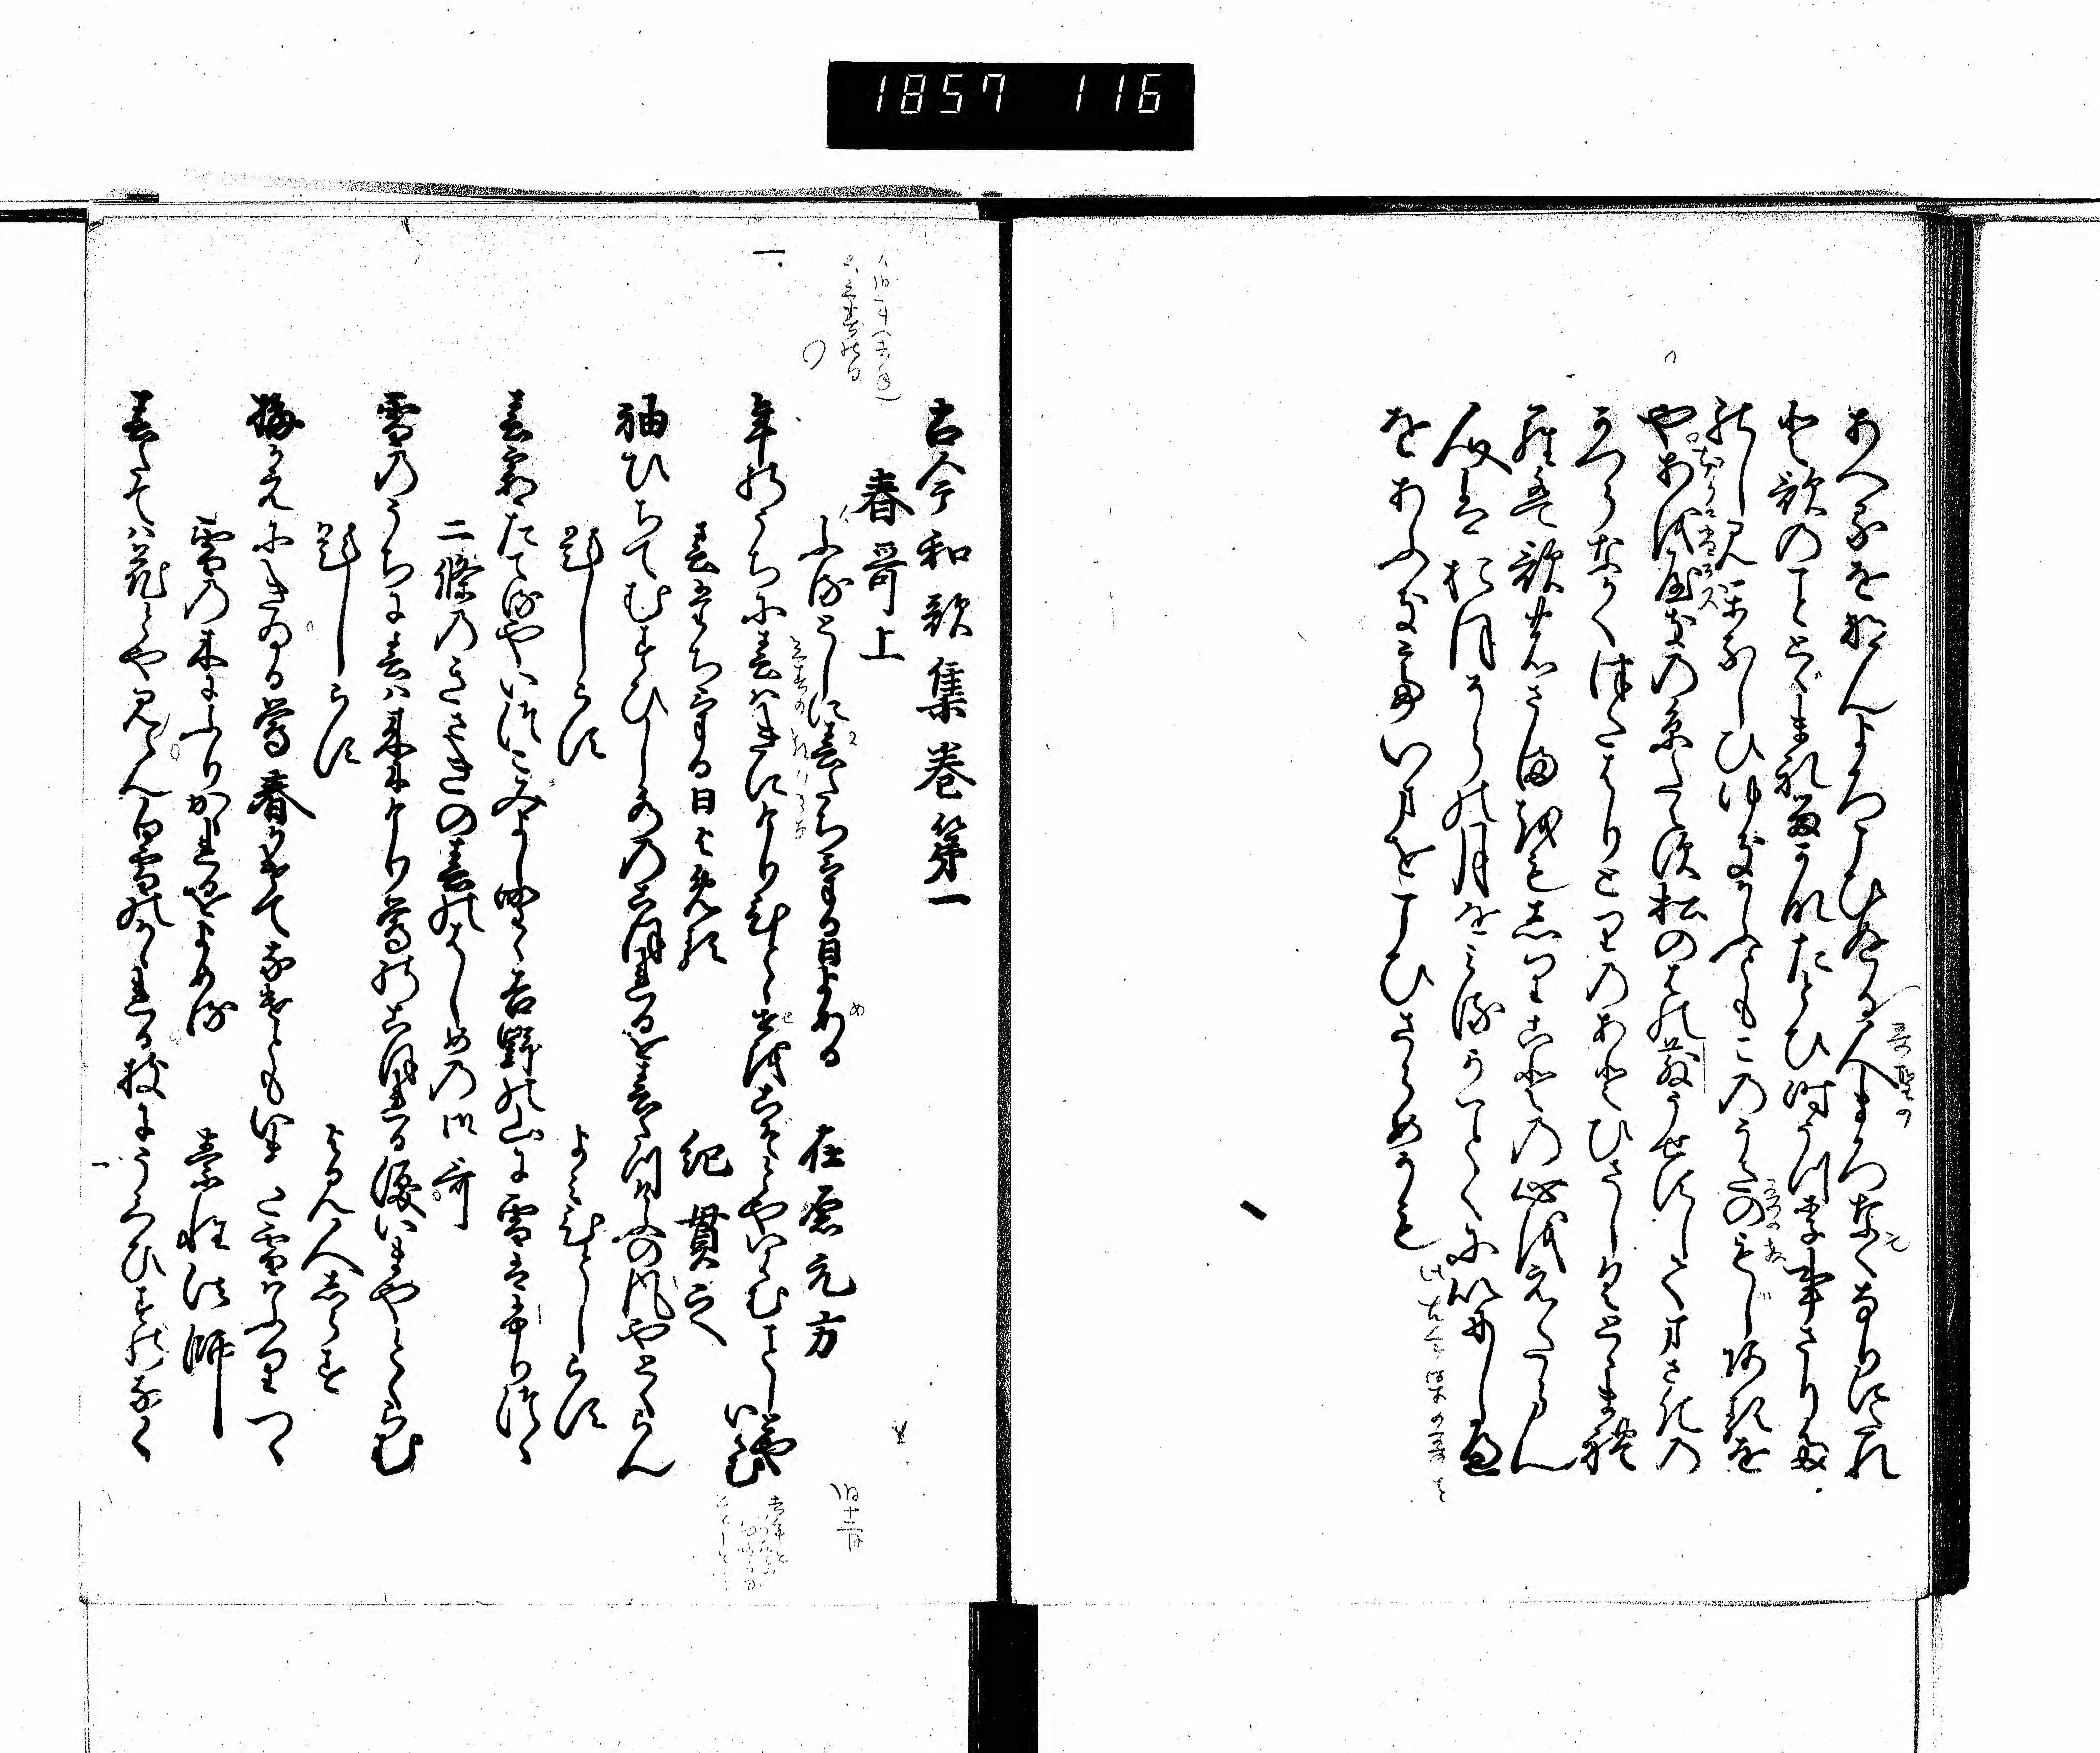 1857 116
あへるをなんよろこひぬる人まろなくなりにたれ
と歌のことゝまれるかなたとひ時うつり事さり
たのしひかなしひゆきかふともこのうたのもしあるを
や あをやきのいとたえす松の葉のちりうせすしてまさきの
かつらなかくつたはりとりのあとひさしくとゝまれ
らは歌のさまをもしりことの心をえたらん
人はおほそらの月をみるかことくにいにしへ
をあふきていまをこひさらめかも
古今和歌集巻第一
春哥上
ふるとしに春たちける日よめる 在原元方
年のうちに春はきにけりひとゝせをこそとやいはむことしとやいはむ
春たちける日よめる 紀貫之
袖ひちてむすひし水のこほれるを春立けふの風やとくらん
題しらす よみ人しらす
春霞たてるやいつこみよしのゝ吉野の山に雪はふりつゝ
二條のきさきの春のはしめの御哥
雪のうちに春は来にけり鶯のこほれる涙いまやとくらむ
題しらす よみ人しらす
梅かえにきゐる鶯春かけてなけともいまた雪はふりつゝ
雪の木にふりかゝれるをよめる 素性法師
春たては花とや見らん白雪のかゝれる枝にうくひすのなく